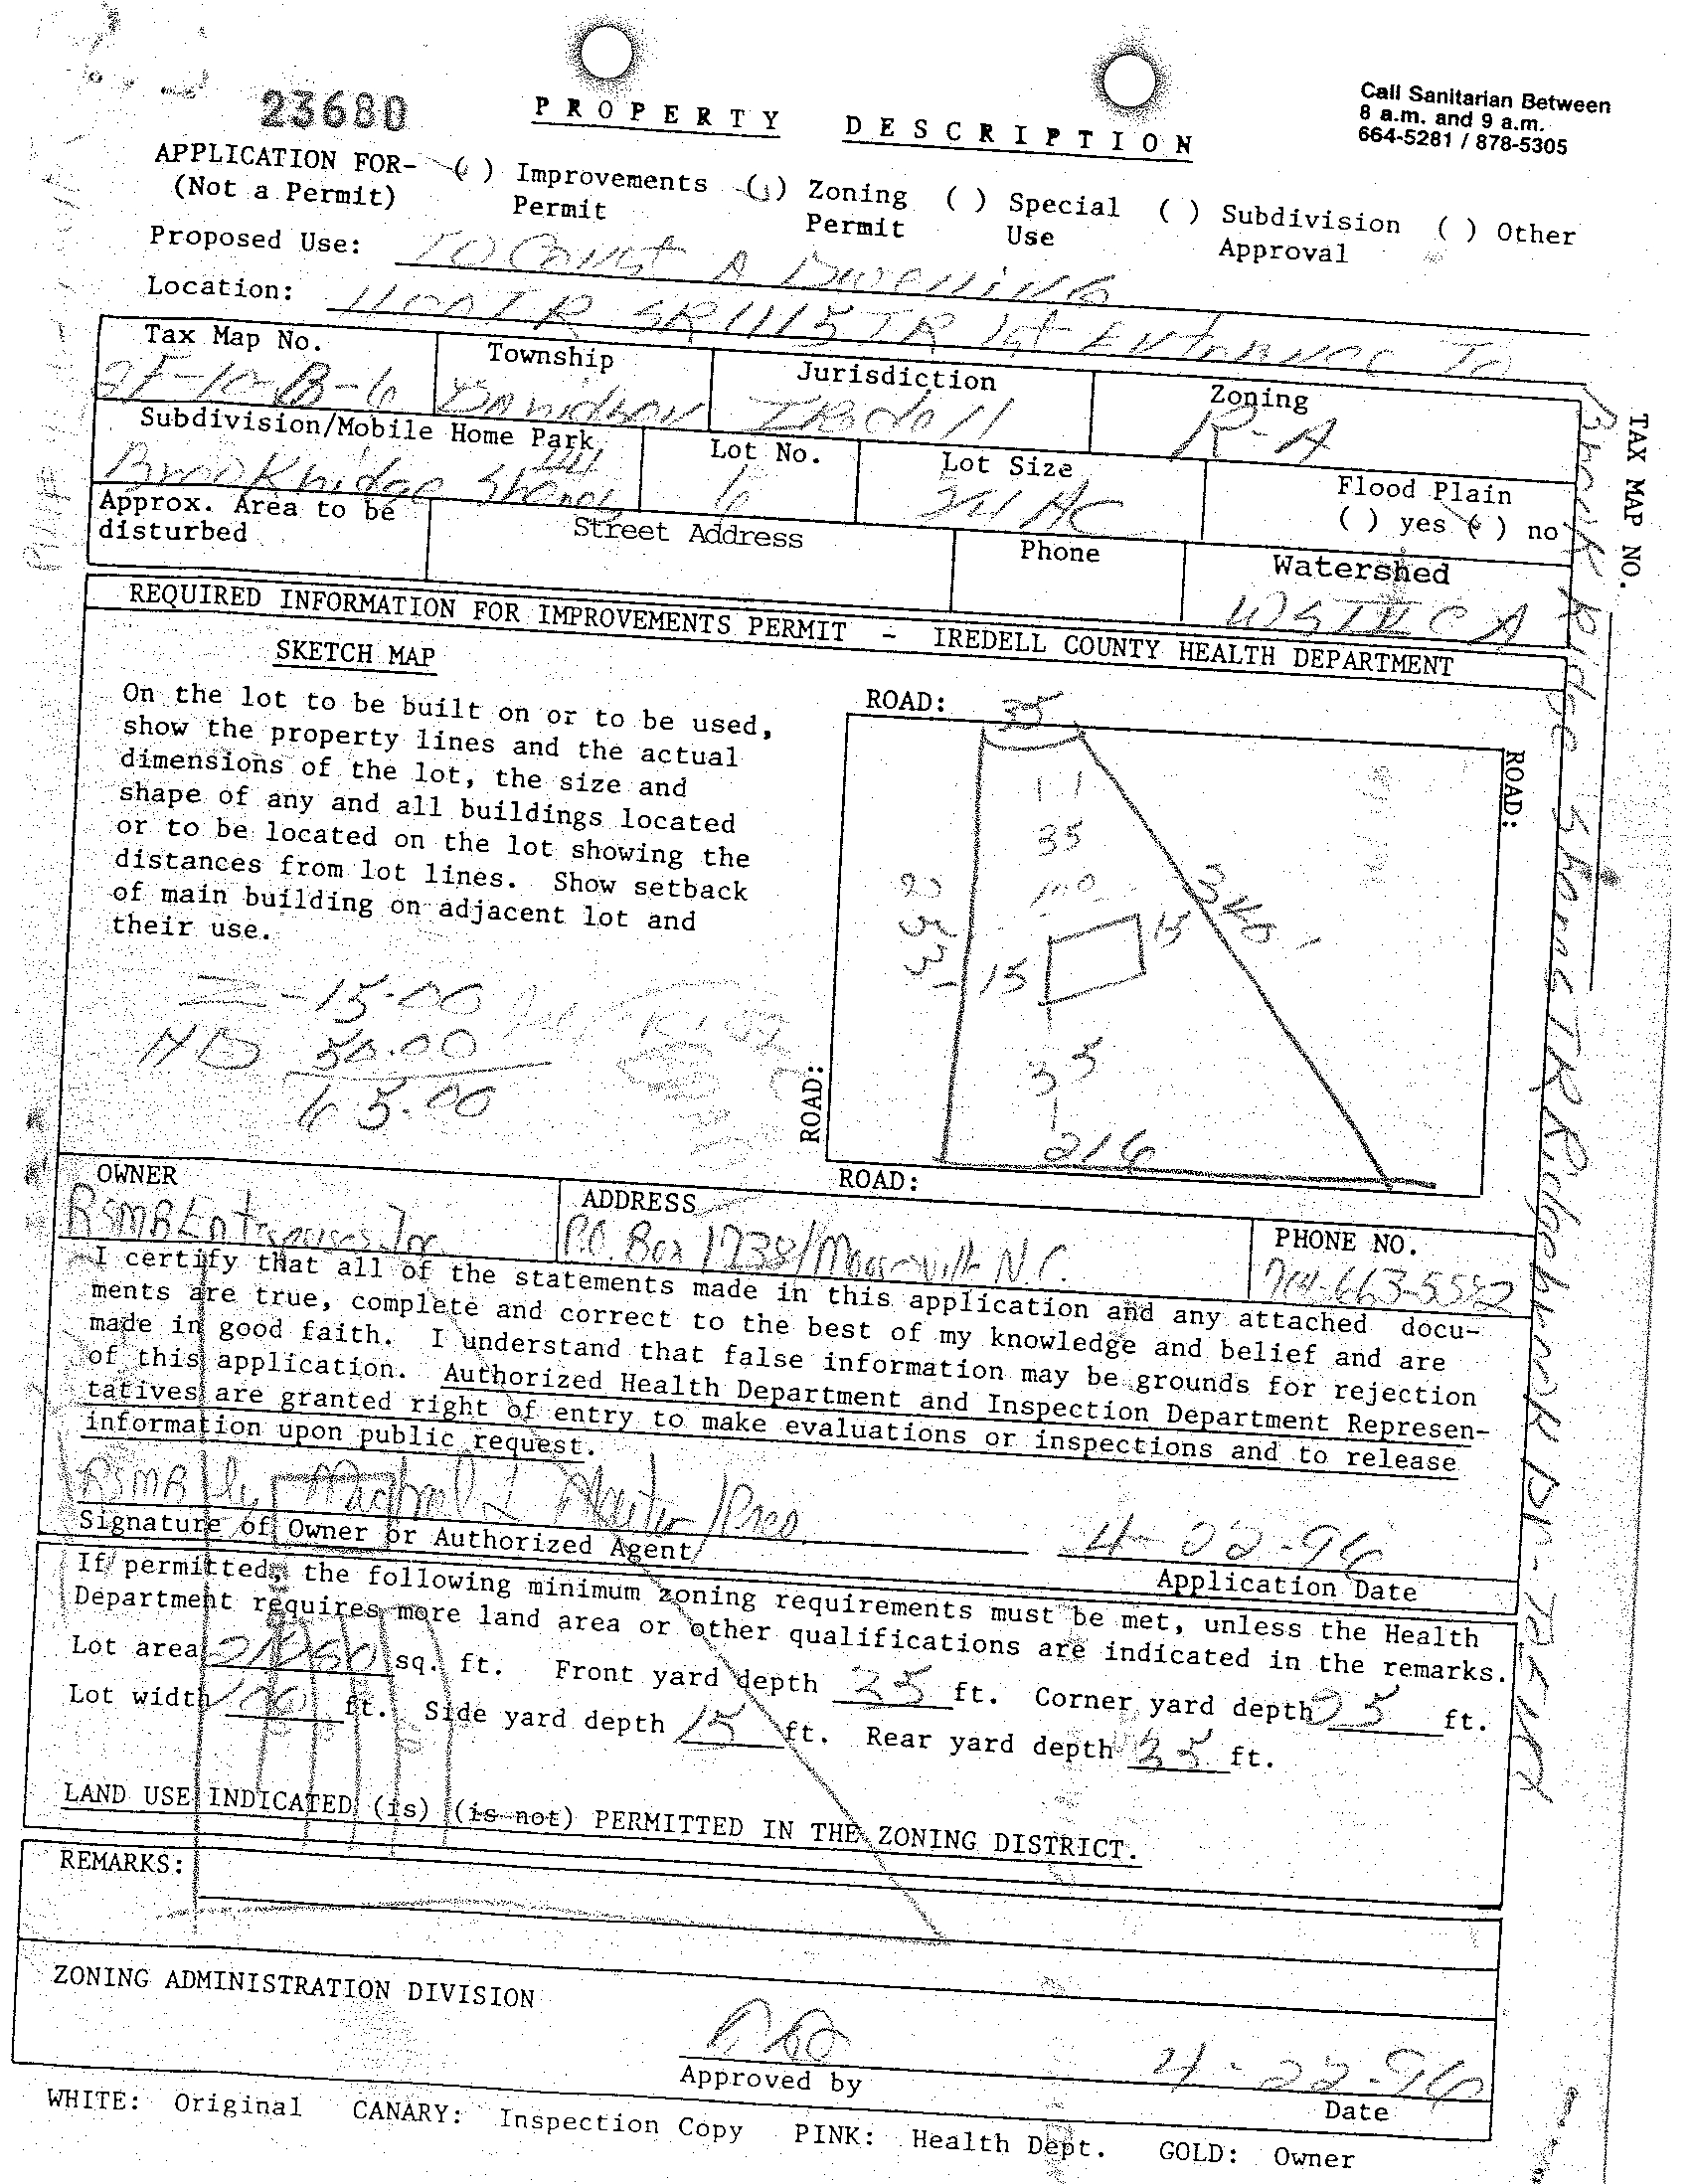 23680
PROPERTY DESCRIPTION
Call Sanitarian Between
8 a.m. and 9 a.m.
664-5281 / 878-5305
APPLICATION FOR- ( ) Improvements Permit ( ) Zoning Permit ( ) Special Use ( ) Subdivision Approval ( ) Other
(Not a Permit)
Proposed Use: To Const A Dwelling
Location: SR 1115 TR 1st Entrance To
Brook Ridge Shores TR Ridgebrook Dr -
TAX MAP NO.
Tax Map No. Township Jurisdiction Zoning
2F-10-B-6 Davidson Iredell R-A
Subdivision/Mobile Home Park Lot No. Lot Size Flood Plain
Brookridge Shores 6 AC ( ) yes ( ) no
Approx. Area to be disturbed Street Address Phone Watershed
CA
REQUIRED INFORMATION FOR IMPROVEMENTS PERMIT - IREDELL COUNTY HEALTH DEPARTMENT
SKETCH MAP
On the lot to be built on or to be used,
show the property lines and the actual
dimensions of the lot, the size and
shape of any and all buildings located
or to be located on the lot showing the
distances from lot lines. Show setback
of main building on adjacent lot and
their use.
Z - 15.00
HD 50.00
65.00
ROAD:
35
ROAD:
35
15
15
35
216
ROAD:
ROAD:
OWNER ADDRESS PHONE NO.
RSMB Entreprises Inc P.O. Box 1738/Mooresville N.C. 704-663-5582
I certify that all of the statements made in this application and any attached docu-
ments are true, complete and correct to the best of my knowledge and belief and are
made in good faith. I understand that false information may be grounds for rejection
of this application. Authorized Health Department and Inspection Department Represen-
tatives are granted right of entry to make evaluations or inspections and to release
information upon public request.
RSMB by Michael L Pres 4-22-96
Signature of Owner or Authorized Agent Application Date
If permitted, the following minimum zoning requirements must be met, unless the Health
Department requires more land area or other qualifications are indicated in the remarks.
Lot area sq. ft. Front yard depth 35 ft. Corner yard depth 25 ft.
Lot width 100 ft. Side yard depth 15 ft. Rear yard depth 35 ft.
LAND USE INDICATED (is) (is not) PERMITTED IN THE ZONING DISTRICT.
REMARKS:
ZONING ADMINISTRATION DIVISION
4-22-96
Approved by Date
WHITE: Original CANARY: Inspection Copy PINK: Health Dept. GOLD: Owner